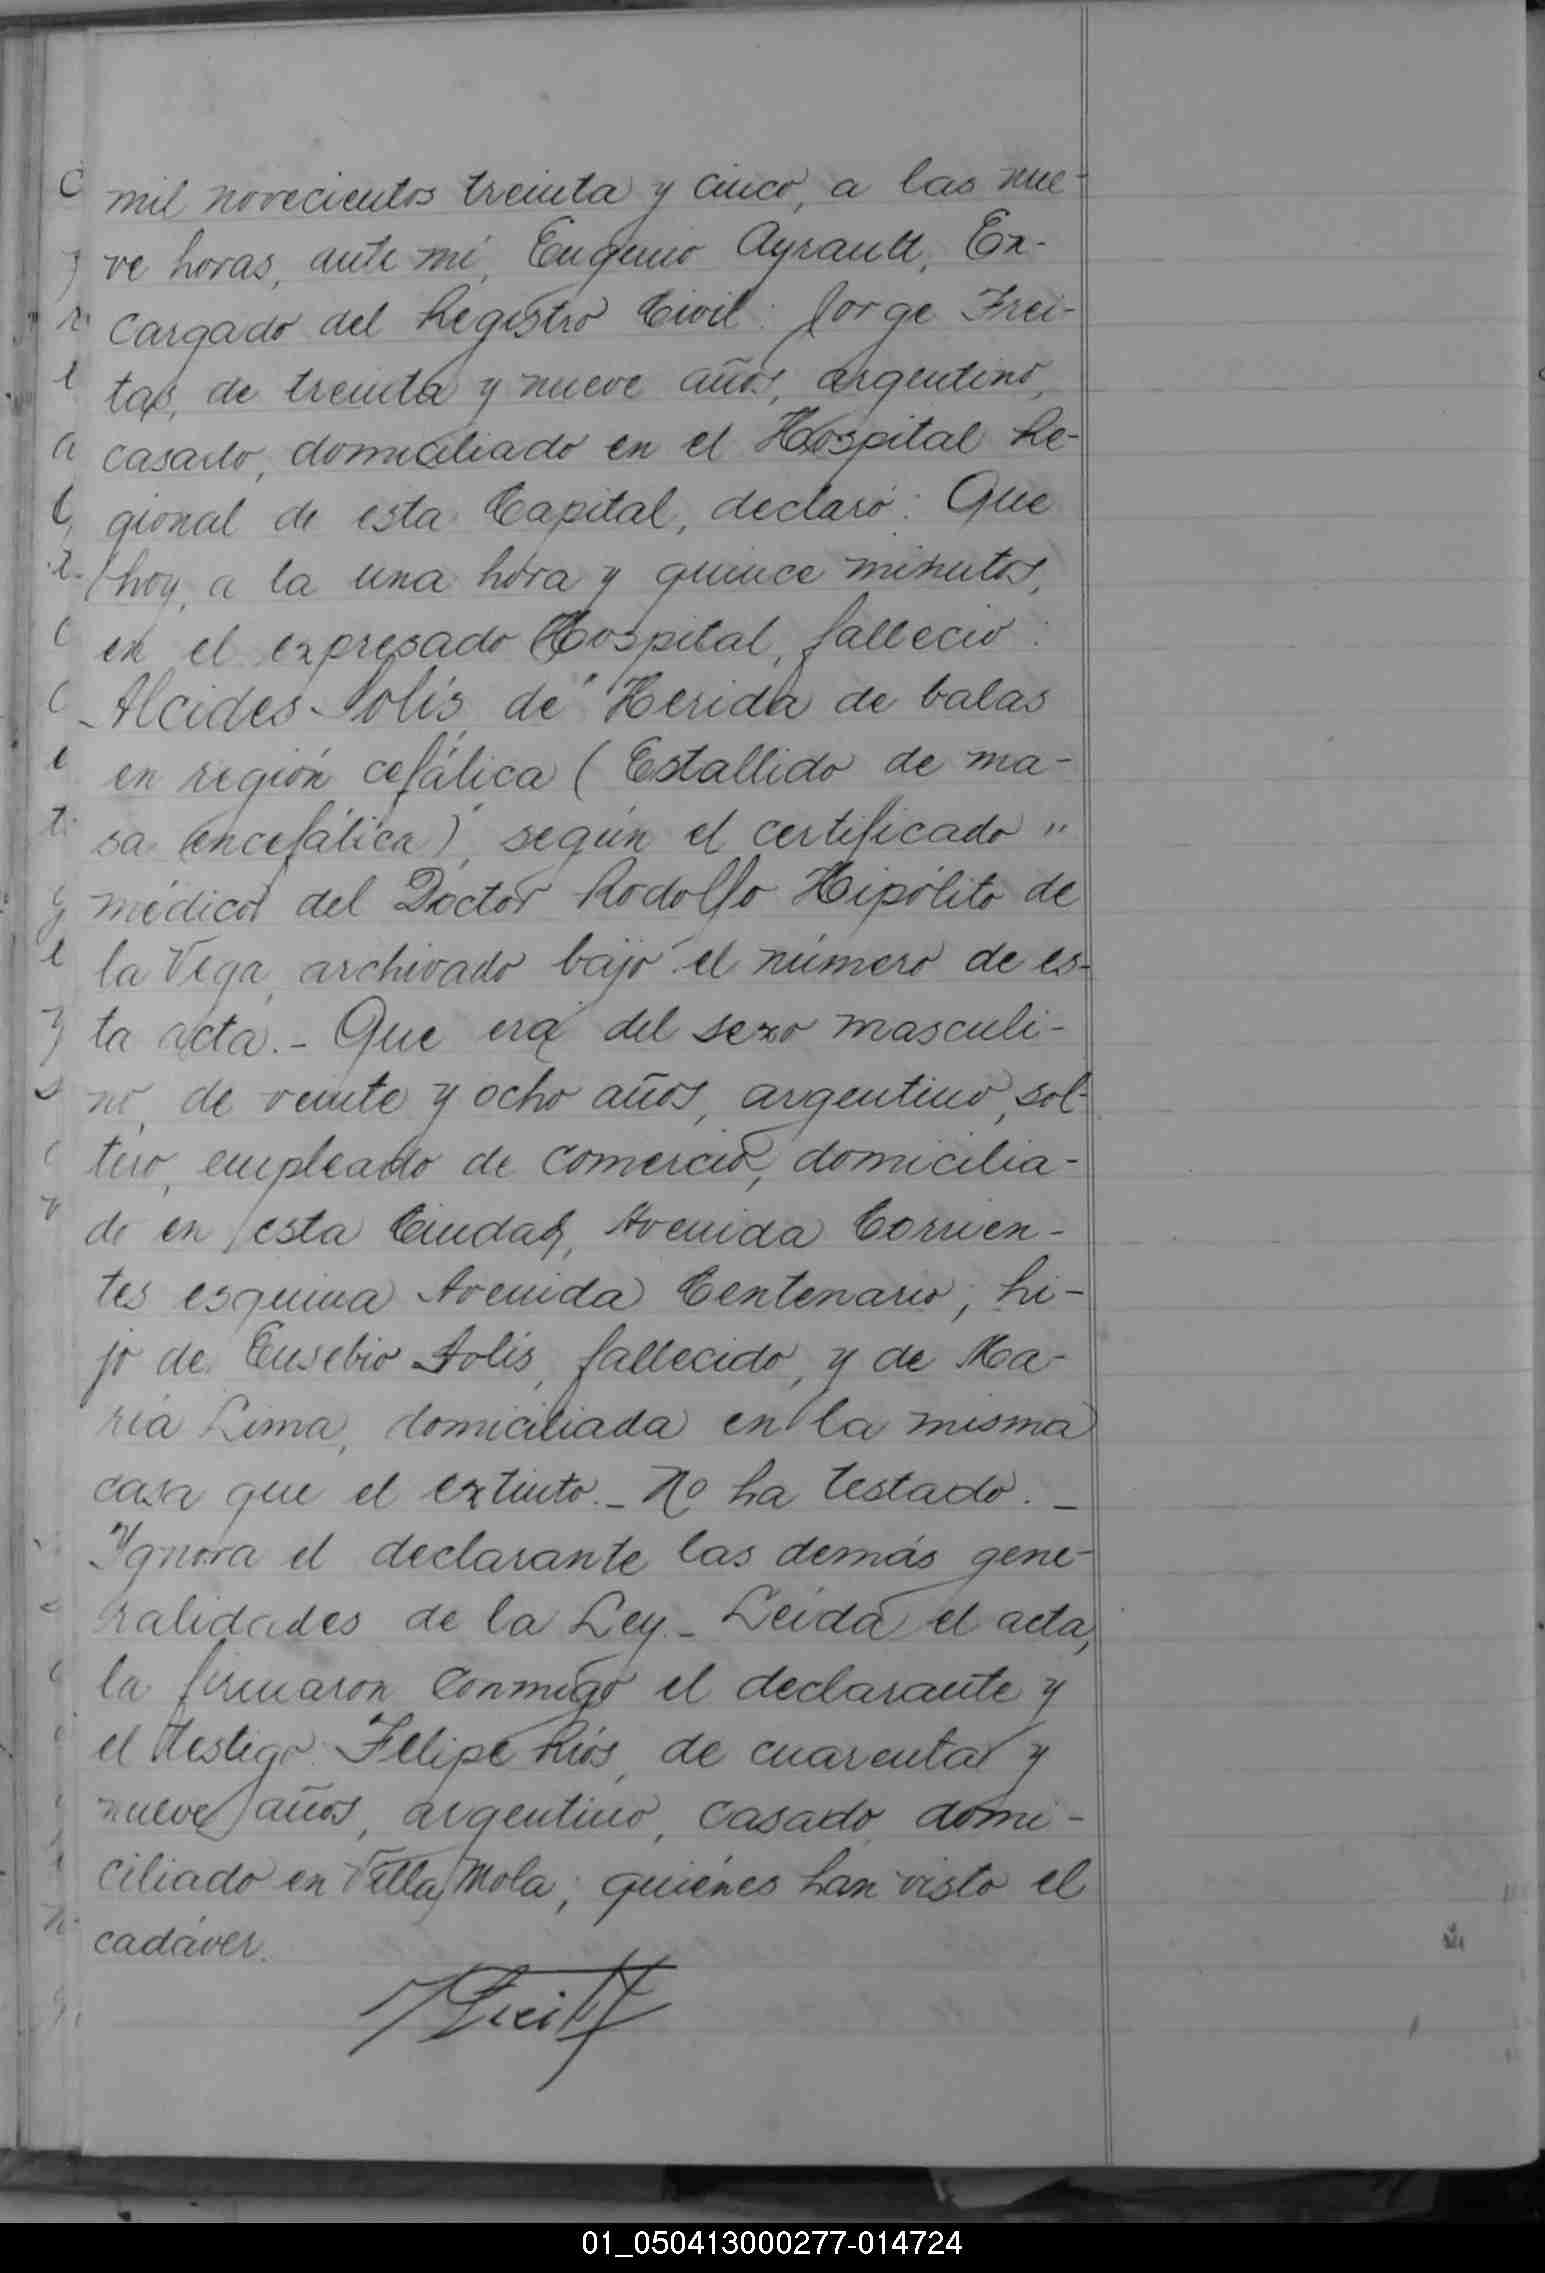 mil novecientos treinta y cinco, a las nue-
ve horas, ante mi, Eugenio Ayrault, En-
cargado del Registro Civil: Jorge Frei-
tas, de treinta y nueve años, argentino,
casado, domiciliado en el Hospital Re-
gional de esta Capital, declaró: Que
hoy, a la una hora y quince minutos,
en el expresado Hospital, falleció:
Alcides Solís, de "Herida de balas
en región cefálica (Estallido de ma-
sa encefálica)", según el certificado "
médico del Doctor Rodolfo Hipólito de
la Vega, archivado bajo el número de es-
ta acta.- Que era del sexo masculi-
no, de veinte y ocho años, argentino, sol-
tero, empleado de comercio, domicilia-
do en esta Ciudad, Avenida Corrien-
tes esquina Avenida Centenario; hi-
jo de Eusebio Solís, fallecido, y de Ma-
ría Lima, domiciliada en la misma
casa que el extinto.- No ha testado.-
Ignora el declarante las demás gene-
ralidades de la Ley.- Leida el acta,
la firmaron conmigo el declarante y
el testigo: Felipe Ríos, de cuarenta y
nueve años, argentino, casado, domi-
ciliado en Villa Mola; quiénes han visto el
cadáver.
01_050413000277-014724